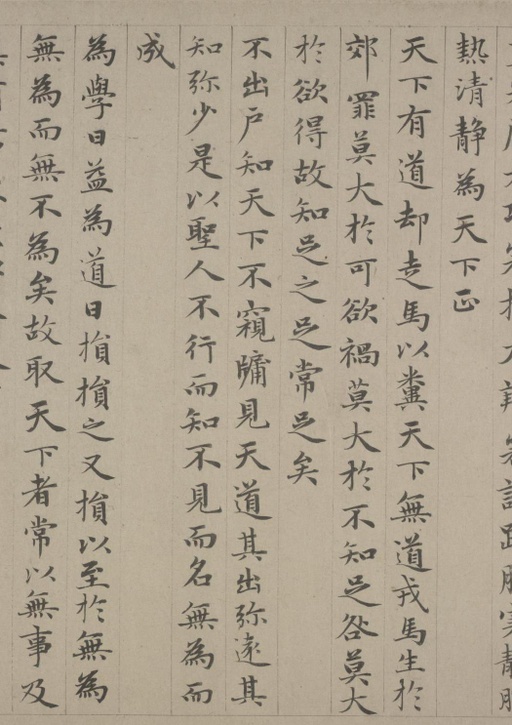 熱清静為天下正
天下有道却走馬以糞天下無道戎馬生於
郊罪莫大於可欲禍莫大於不知足咎莫大
於欲得故知足之足常足矣
不出戶知天下不窺牖見天道其出弥遠其
知弥少是以聖人不行而知不見而名無為而
成
為學日益為道日損損之又損以至於無為
無為而無不為矣故取天下者常以無事及